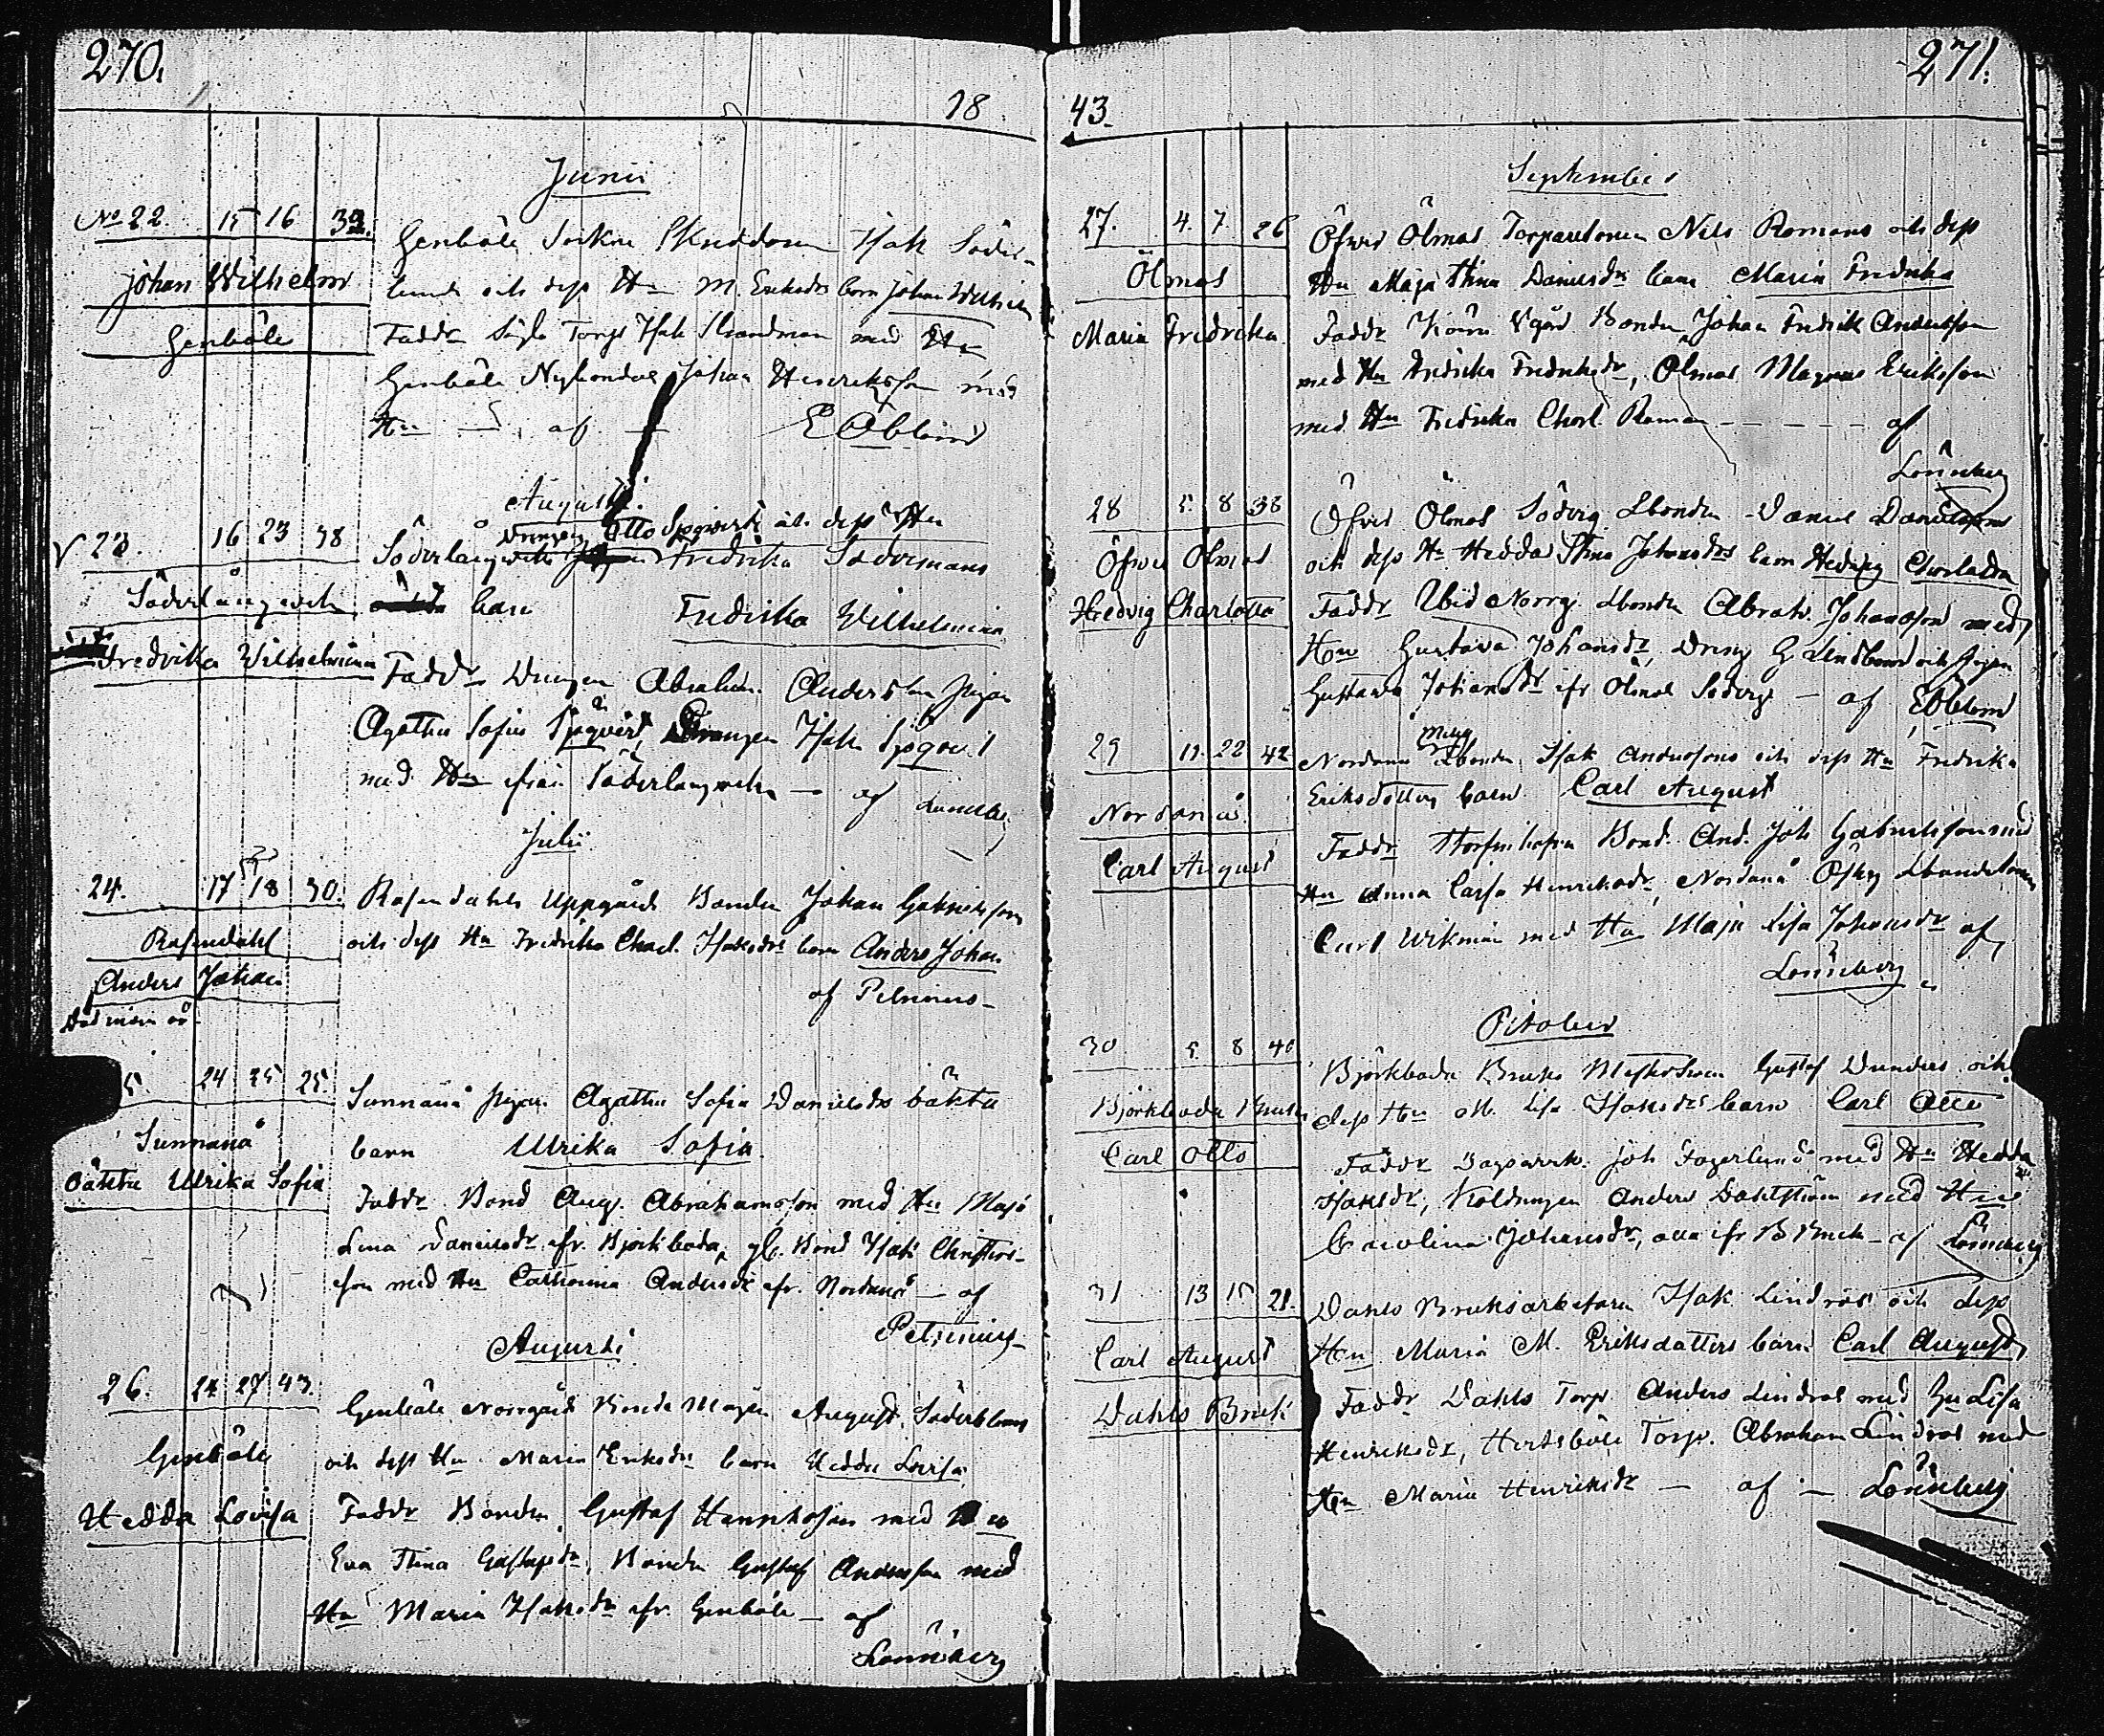 270.
18
Junii
No 22 15 16 32.
Johan Wilhelm
Genböle
Genböle Sockne Skreddaren Isak Söder-
lund och dess Hu M. Eriksdrs barn Johan Wilhelm
Faddr Torp Isak Strandman med Hu
Genböle Nybondas Johan Henriksson med
Hu — af — E Öblom
Augusti.
23. 16 23 38
Söderlångvik
Fredrika Wilhelmina
Drengen Otto Sjöqvist och dess Hu
Söderlångvik Fredrika Södermans
barn Fredrika Wilhelmina
Faddr Drengen Abraham Andersson pigan
Agatha Sofia Sjöqvist, Drengen Isak Sjöqvist
med Hu ifrån Söderlångvik — af
Julii
24. 17 18 30.
Rosendahl
Anders Johan
Rosendahls Uppgårds Bonden Johan Gabrielsson
och dess Hu Fredrika Charl. Isaksdrs barn Anders Johan
af Petrinus
5 24 25 25
Sunnanå
oäkta Ulrika Sofia
Sunnanå pigan Agatha Sofia Danielsdrs oäkta
barn Ulrika Sofia
Faddr Bond Aug. Abrahamsson med Hu Maja
Lena Danielsdr ifr. Björkboda, gl. Bond Isak Christers-
son med Hu Catharina Andersdr ifr. Nordanå — af
Petrinius
Augusti
26. 24 27 43.
Genböle
Hedda Lovisa
Genböle Norrgårds Bonde Mågen August Söderblom
och dess Hu Maria Eriksdrs barn Hedda Lovisa
Faddr Bonden Gustaf Henriksson med Hu
Eva Stina Gustafsdr, Bonden Gustaf Andersson med
Hu Maria Isaksdr ifr. Genböle — af
Lönnberg
271.
43.
September
27. 4. 7 26
Ölmos
Maria Fredrika
Öfver Ölmos Torparesonen Nils Romans och dess
Hu Maja Stina Danielsdrs barn Maria Fredrika
Faddr Bonden Johan Fredrik Andersson
med Hu Fredrika Fredriksdr, Ölmos Magnus Eriksson
med Hu Fredrika Charl. Roman - - - - - af
Lönnberg
28 5. 8 38
Öfver Ölmos
Hedvig Charlotta
Öfver Ölmos Söderg Lbonden Daniel Danielssons
och dess Hu Hedda Stina Johansdrs barn Hedvig Charlotta
Faddr Norrg. Lbonden Abrah. Johansson med
Hu Gustava Johansdr, Dreng G Lindbom och pigan
Gustava Johansdr ifr Ölmos Söderg — af EÖblom
29 11. 22 42
Nordanå
Carl August
Nordanå Mellg Lbonden Isak Anderssons och dess Hu Fredrika
Eriksdotters barn Carl August
Faddr Bond. And. Joh Gabrielsson med
Hu Anna Caisa Henriksdr, Nordanå Östeg Lbondesonen
Carl Wikman med Hu Maja Lisa Johansdr af
Lönnberg
October
30 5. 8 40
Björkboda Bruk
Carl Otto
Björkboda Bruks Gustaf Dunders och
dess Hu M. Lisa Isaksdrs barn Carl Otto
Faddr Joh Fagerlund med Hu Hedda
Isaksdr, Koldrengen Anders Dahlström med Hu
Carolina Johansdr, alla ifr B Bruk — af Lönnberg
31 13 15 21.
Carl August
Dahls Bruk
Dahls Bruksarbetaren Isak Lindros och dess
Hu Maria M. Eriksdotters barn Carl August
Faddr Dahls Torp. Anders Lindros med Hu Lisa
Henriksdr, Hertsböle Torp. Abraham Lindros med
Hu Maria Henriksdr — af — Lönnberg